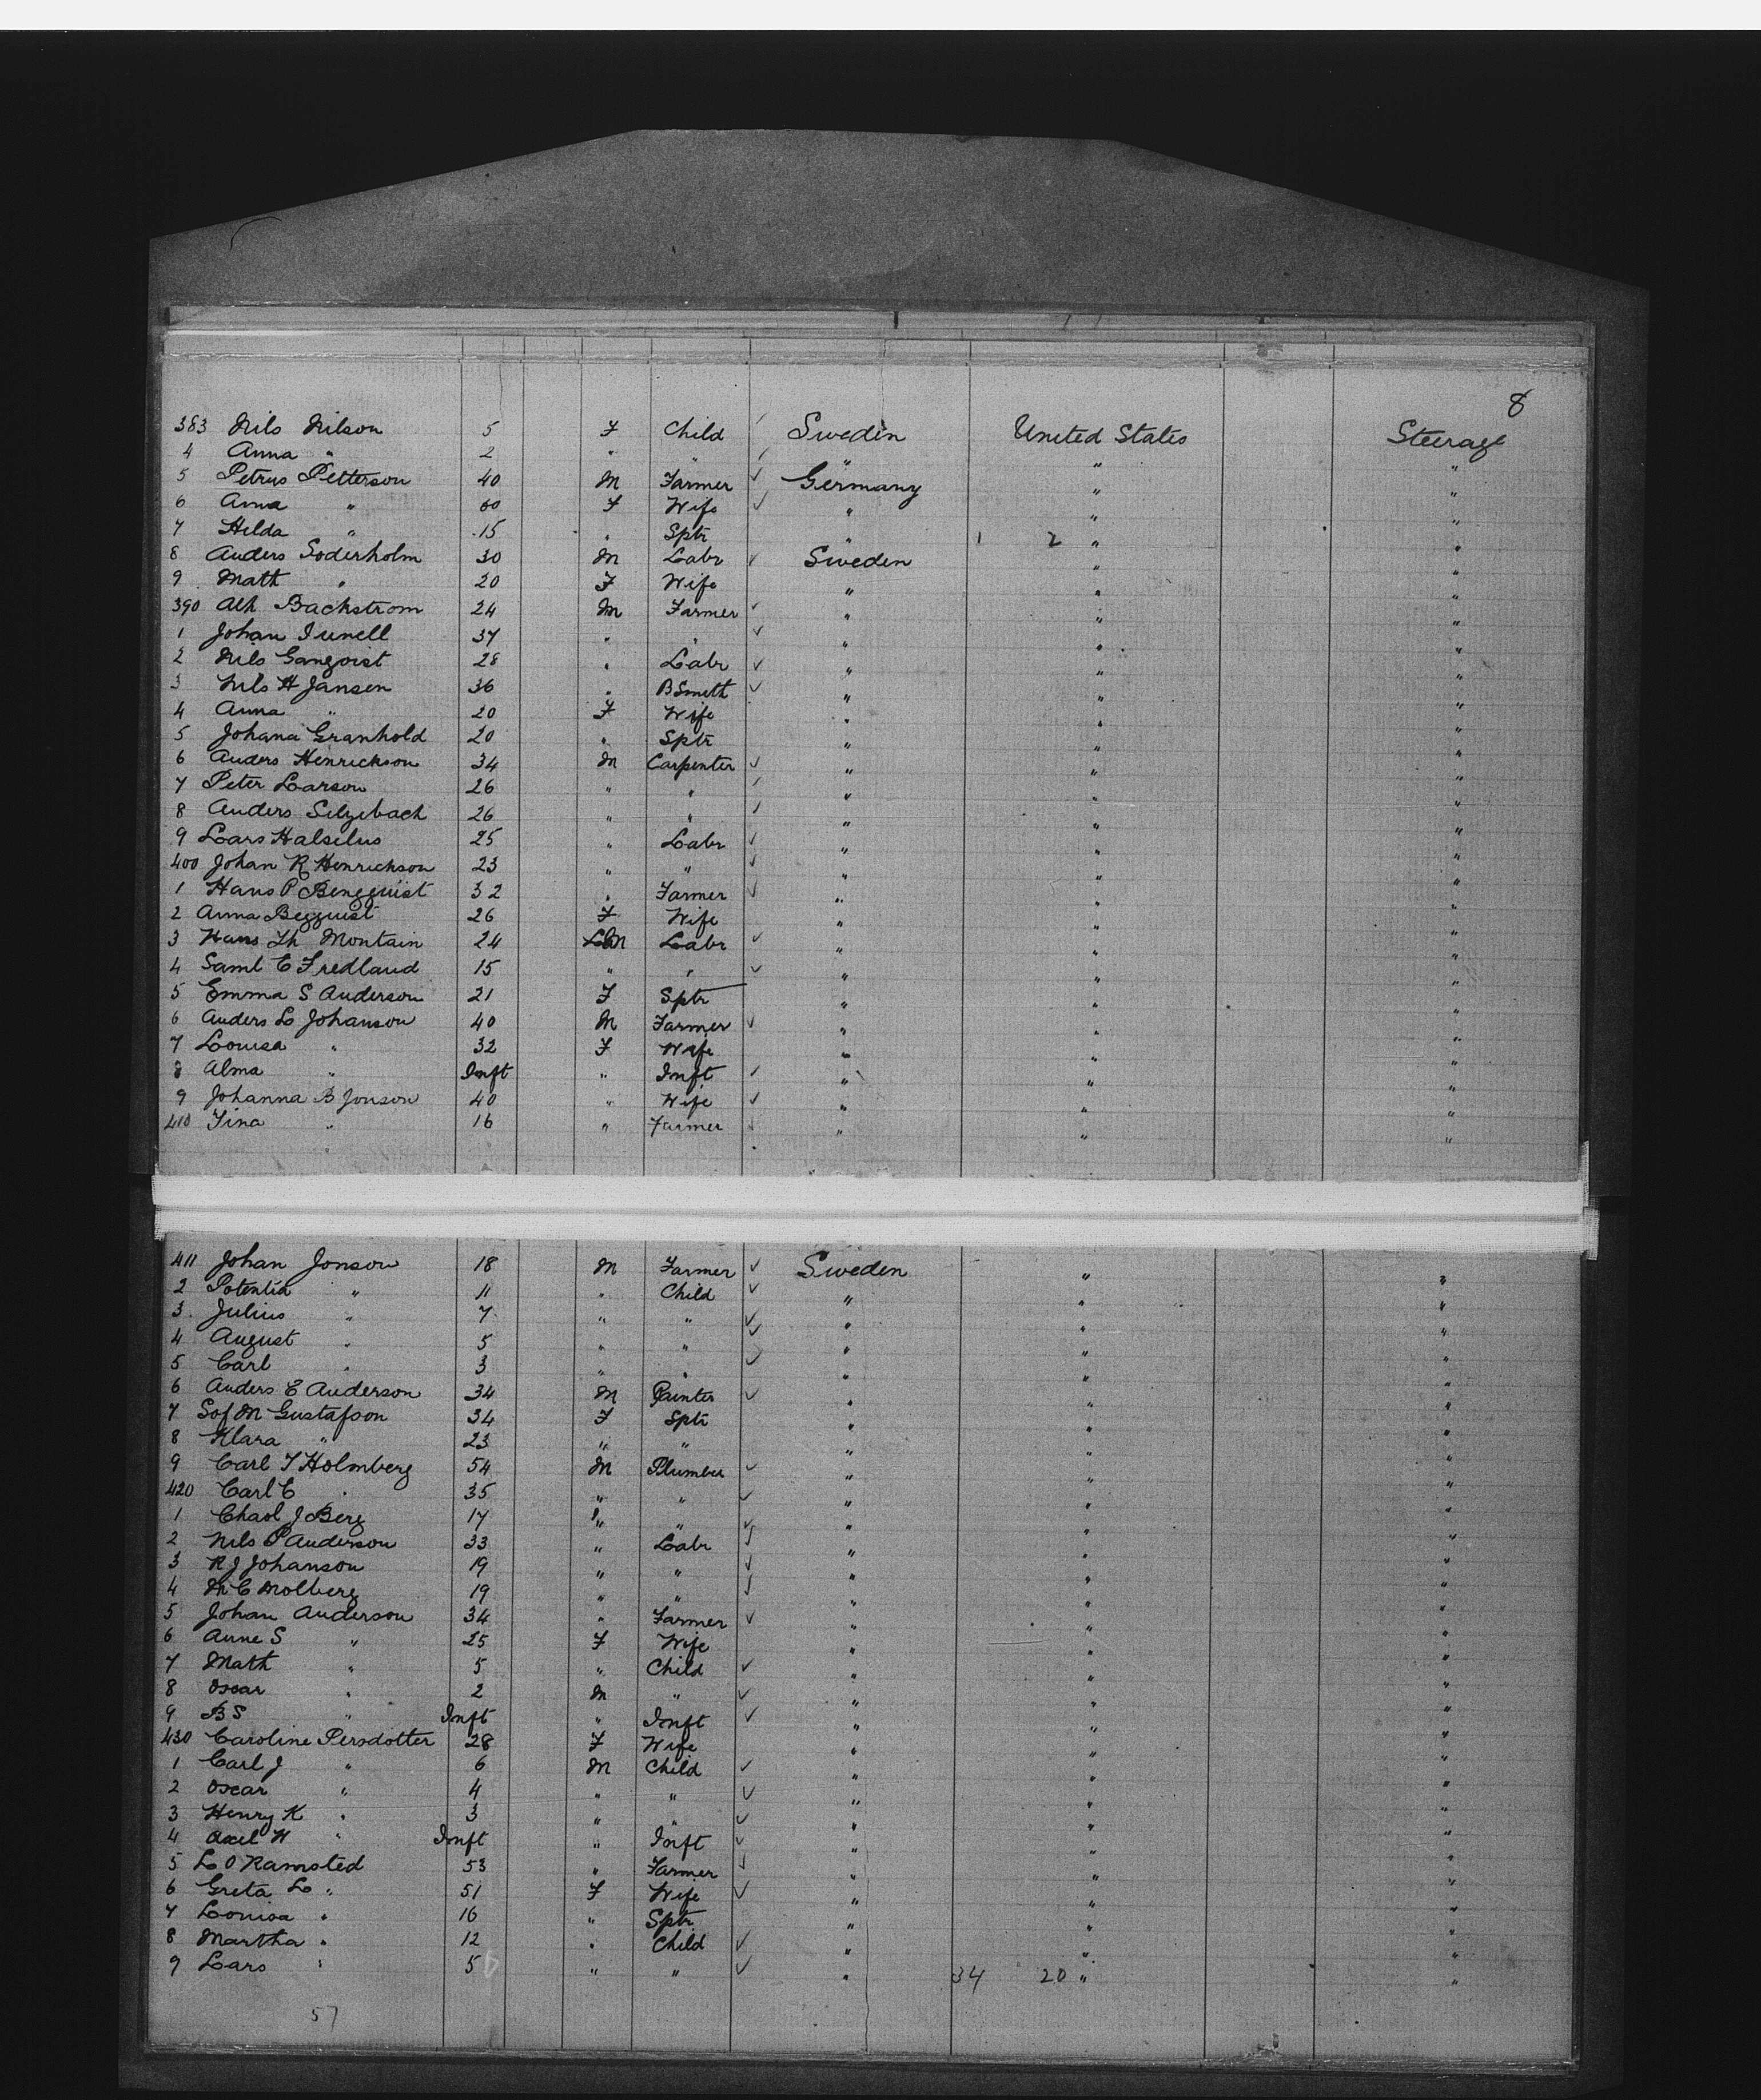 8
383 Nils Nilson 5 F Child Sweden United States Steerage
4 Anna " 2 " " " " "
5 Petrus Petterson 40 M Farmer ✓ Germany " "
6 Anna " 60 F Wife ✓ " " "
7 Hilda " 15 " Sptr " 1 2 " "
8 Anders Soderholm 30 M Labr ✓ Sweden " "
9 Math " 20 F Wife " " "
390 Alh Bachstrom 24 M Farmer ✓ " " "
1 Johan Iunell 37 " " ✓ " " "
2 Nils Ganqvist 28 " Labr ✓ " " "
3 Nils H Jansen 36 " BSmith ✓ " " "
4 Anna " 20 F Wife " " "
5 Johana Granhold 20 " Sptr " " "
6 Anders Henrickson 34 M Carpenter ✓ " " "
7 Peter Larson 26 " " ✓ " " "
8 Anders Selzebach 26 " " ✓ " " "
9 Lars Halselus 25 " Labr ✓ " " "
400 Johan R Henrickson 23 " " ✓ " " "
1 Hans P Bengquist 32 " Farmer ✓ " " "
2 Anna Begquist 26 F Wife " " "
3 Hans Th Montain 24 M Labr ✓ " " "
4 Saml E Fredlaud 15 " " ✓ " " "
5 Emma S Anderson 21 F Sptr " " "
6 Anders L Johanson 40 M Farmer ✓ " " "
7 Louisa " 32 F Wife " " "
8 Alma " Inft " Inft ✓ " " "
9 Johanna B Jonson 40 " Wife ✓ " " "
410 Tina " 16 " Farmer ✓ " " "
411 Johan Jonson 18 M Farmer ✓ Sweden " "
2 Potentia " 11 " Child ✓ " " "
3 Julius " 7 " " ✓ " " "
4 August " 5 " " ✓ " " "
5 Carl " 3 " " ✓ " " "
6 Anders E Anderson 34 M Painter ✓ " " "
7 Sof M Gustafson 34 F Sptr " " "
8 Klara " 23 " " " " "
9 Carl T Holmberg 54 M Plumber ✓ " " "
420 Carl E " 35 " " ✓ " " "
1 Chasl J Berg 17 " " ✓ " " "
2 Nils P Anderson 33 " Labr ✓ " " "
3 R J Johanson 19 " " ✓ " " "
4 N C Molberg 19 " " ✓ " " "
5 Johan Anderson 34 " Farmer ✓ " " "
6 Anne S " 25 F Wife " " "
7 Math " 5 " Child ✓ " " "
8 Oscar " 2 M " ✓ " " "
9 B S " Inft " Inft ✓ " " "
430 Caroline Persdotter 28 F Wife " " "
1 Carl J " 6 M Child ✓ " " "
2 Oscar " 4 " " ✓ " " "
3 Henry K " 3 " " ✓ " " "
4 Axel W " Inft " Inft ✓ " " "
5 L O Ramsted 53 " Farmer ✓ " " "
6 Greta L " 51 F Wife ✓ " " "
7 Louisa " 16 " Sptr " " "
8 Martha " 12 " Child ✓ " " "
9 Lars " 5 " " ✓ " 34 20 " "
57